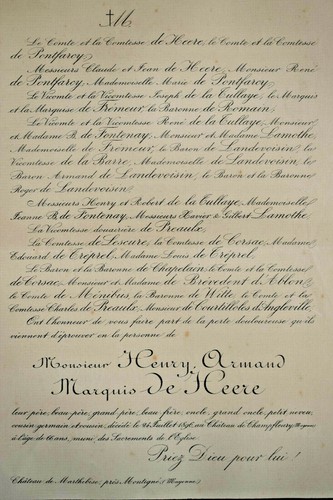 M
Le Comte et la Comtesse de Heere, le Comte et la Comtesse
de Pontfarcy,
Messieurs Claude et Jean de Heere, Monsieur René
de Pontfarcy, Mademoiselle Marie de Pontfarcy,
Le Vicomte et la Vicomtesse Joseph de la Tullaye, le Marquis
et la Marquise de Frémeur, la Baronne de Romain,
Le Vicomte et la Vicomtesse René de la Tullaye, Monsieur
et Madame B. de Fontenay, Monsieur et Madame Lamothe,
Mademoiselle de Frémeur, le Baron de Landevoisin, la
Vicomtesse de la Barre, Mademoiselle de Landevoisin, le
Baron Armand de Landevoisin, le Baron et la Baronne
Roger de Landevoisin,
Messieurs Henry et Robert de la Tullaye, Mademoiselle
Jeanne B. de Fontenay, Messieurs Xavier & Gilbert Lamothe,
La Vicomtesse douairière de Preaulx,
La Comtesse de Lescure, la Comtesse de Corsac, Madame
Edouard de Créprel, Madame Louis de Créprel,
Le Baron et la Baronne de Chapelain, le Comte et la Comtesse
de Corsac, Monsieur et Madame de Brévedent d'Ablon,
le Comte de Ménibus, la Baronne de Witte, le Comte et la
Comtesse Charles de Preaulx, Monsieur de Courtilloles d'Angleville,
Ont l'honneur de vous faire part de la perte douloureuse qu'ils
viennent d'éprouver en la personne de
Monsieur Henry Armand
Marquis de Heere
leur père, beau-père, grand-père, beau-frère, oncle, grand-oncle, petit-neveu,
cousin-germain et cousin, décédé le 26 Juillet 1896, au Château de Champfleury, Mayenne
à l'âge de 66 ans, muni des Sacrements de l'Eglise.
Priez Dieu pour lui!
Château de Marthebise, près Montigné (Mayenne)